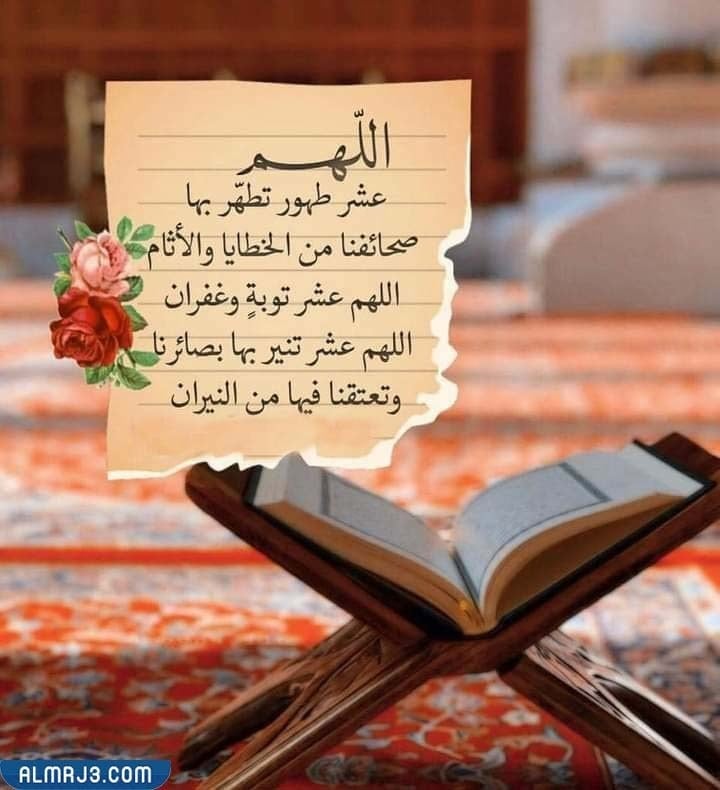 اللّهم
عشر طهور تطهّر بها
صحائفنا من الخطايا والأثام
اللهم عشر توبةٍ وغفران
اللهم عشر تنير بها بصائرنا
وتعتقنا فيها من النيران
ALMRJ3.COM